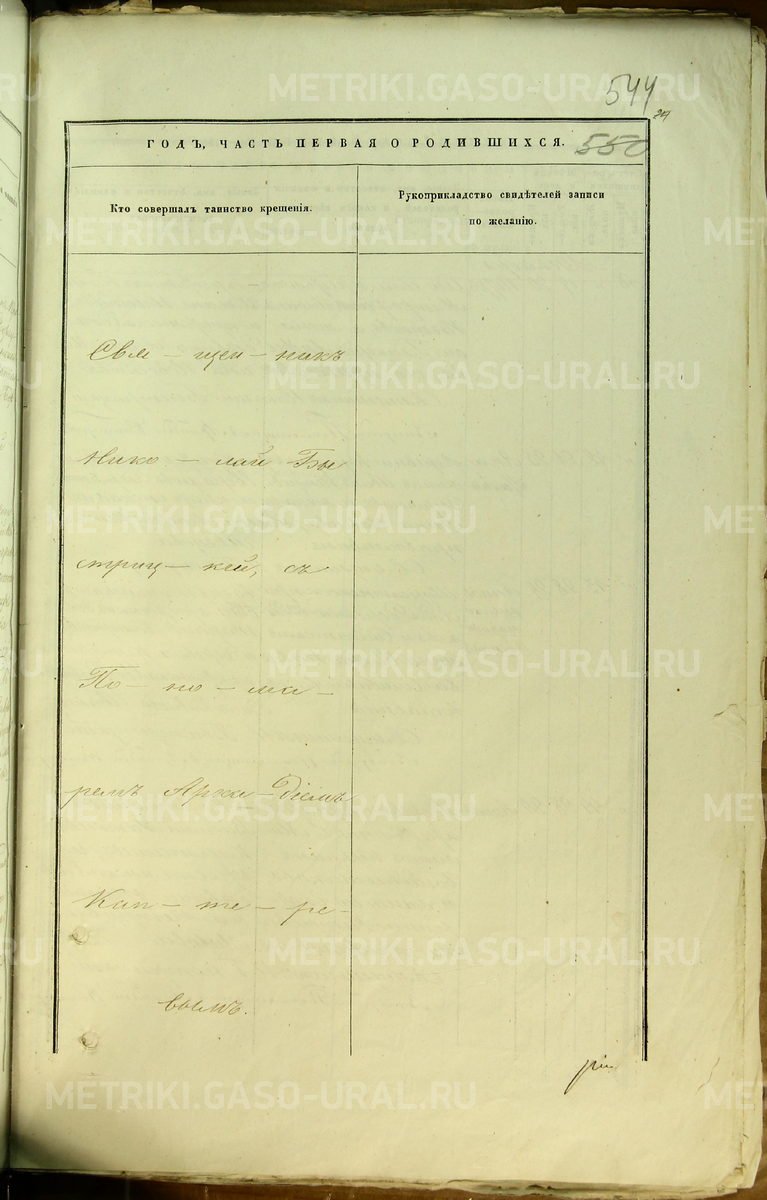 544
550
ГОДЪ, ЧАСТЬ ПЕРВАЯ О РОДИВШИХСЯ.
Кто совершалъ таинство крещенія.
Рукоприкладство свидѣтелей записи
по желанію.
Свя – щен – никъ
Нико – лай Бы
стриц – кей, съ
По – но – ма –
ремъ Арка – діемъ
Кап – те – ре –
вымъ.
METRIKI.GASO-URAL.RU